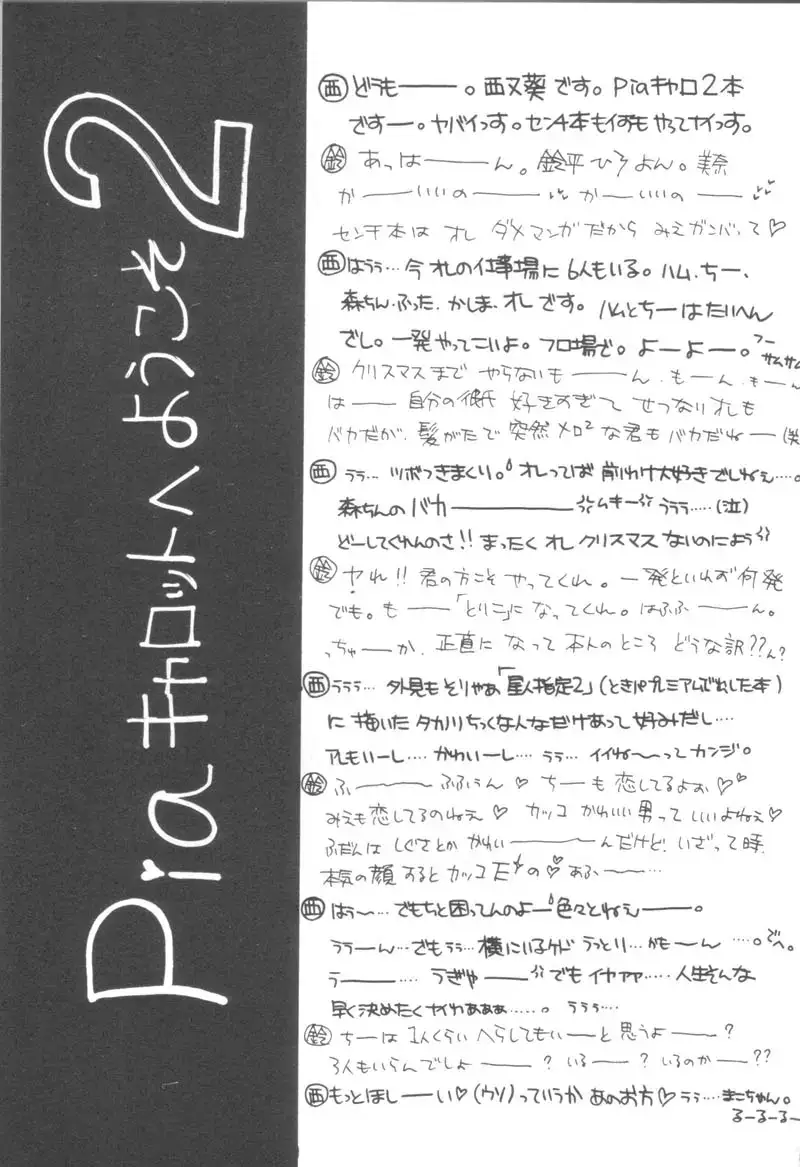 Piaキャロットへようこそ2
㊄ どうもー。西又葵です。Piaキャロ2本
ですー。ヤバイっす。センチ本もイずもやってナイっす。
鈴 あっはーーん。鈴平ひろよん。美奈
かーーいいのーー かーーいいのーー
センチ本は オレ ダメマンガだから みえガンバって♡
西 はうぅ…今オレの仕事場に6人もいる。ハム、ちー、
森ちん、ふった、かしま、オレです。ハムとちーはたいへん
ざし。一発やってこいよ。フロ場で。よーよー。フー サムサム
鈴 クリスマスまで やらないもーーん、もーん、もーん
はーー 自分の彼氏 好きすぎて せつないオレも
バカだが、髪がたで 突然メロ²な君もバカだねー(笑
西 うぅ…ツボつきまくり。オレってば 前わけ大好きでしねぇ…。
森ちんのバカーーーー ムキー うぅぅ……(泣)
どーしてくれんのさ!!まったく オレ クリスマス ないのによう
鈴 ヤれ!!君の方こそ やってくれ。一発といわず何発
でも。もーー「とりこ」になってくれ。はふふーーん。
っちゅーか、正直に なって 本人のところ どうな訳??ん?
西 うぅぅ…外見もそりゃあ「星人指定2」(ときパプレミアムでだした本)
に 描いた タカ川ちっくな人なだけあって 好みだし…
アレもいーし…かわいーし…うぅ…イイね〜ってカンジ。
鈴 ふーーーふふぅん♡ ちーも 恋してるよぉ♡♡
みえも恋してるのねぇ♡ カッコ かわいい男って いいよねぇ♡
ふだんは しぐさとか かわいーーーんだけど、いざって時、
本気の顔するとカッコEの♡ あふーー…
西 はぅ〜…でもちと困ってんのよー 色々とねぇーー。
うぅーん…でもうぅ…横にいるケド うっとり…かもーん …。でへ。
うーー… うぎゃーー でも イヤァァ……人生そんな
早く決めたくナイわぁぁぁ……。うぅぅ…
鈴 ちーは 1人くらい へらしてもいーと 思うよーー?
3人もいらんでしょーー? いるーー? いるのかー??
西 もっとほしーーい♡(ウソ)っていうか あのお方♡ うぅ…まこちゃん。
るーるーるー